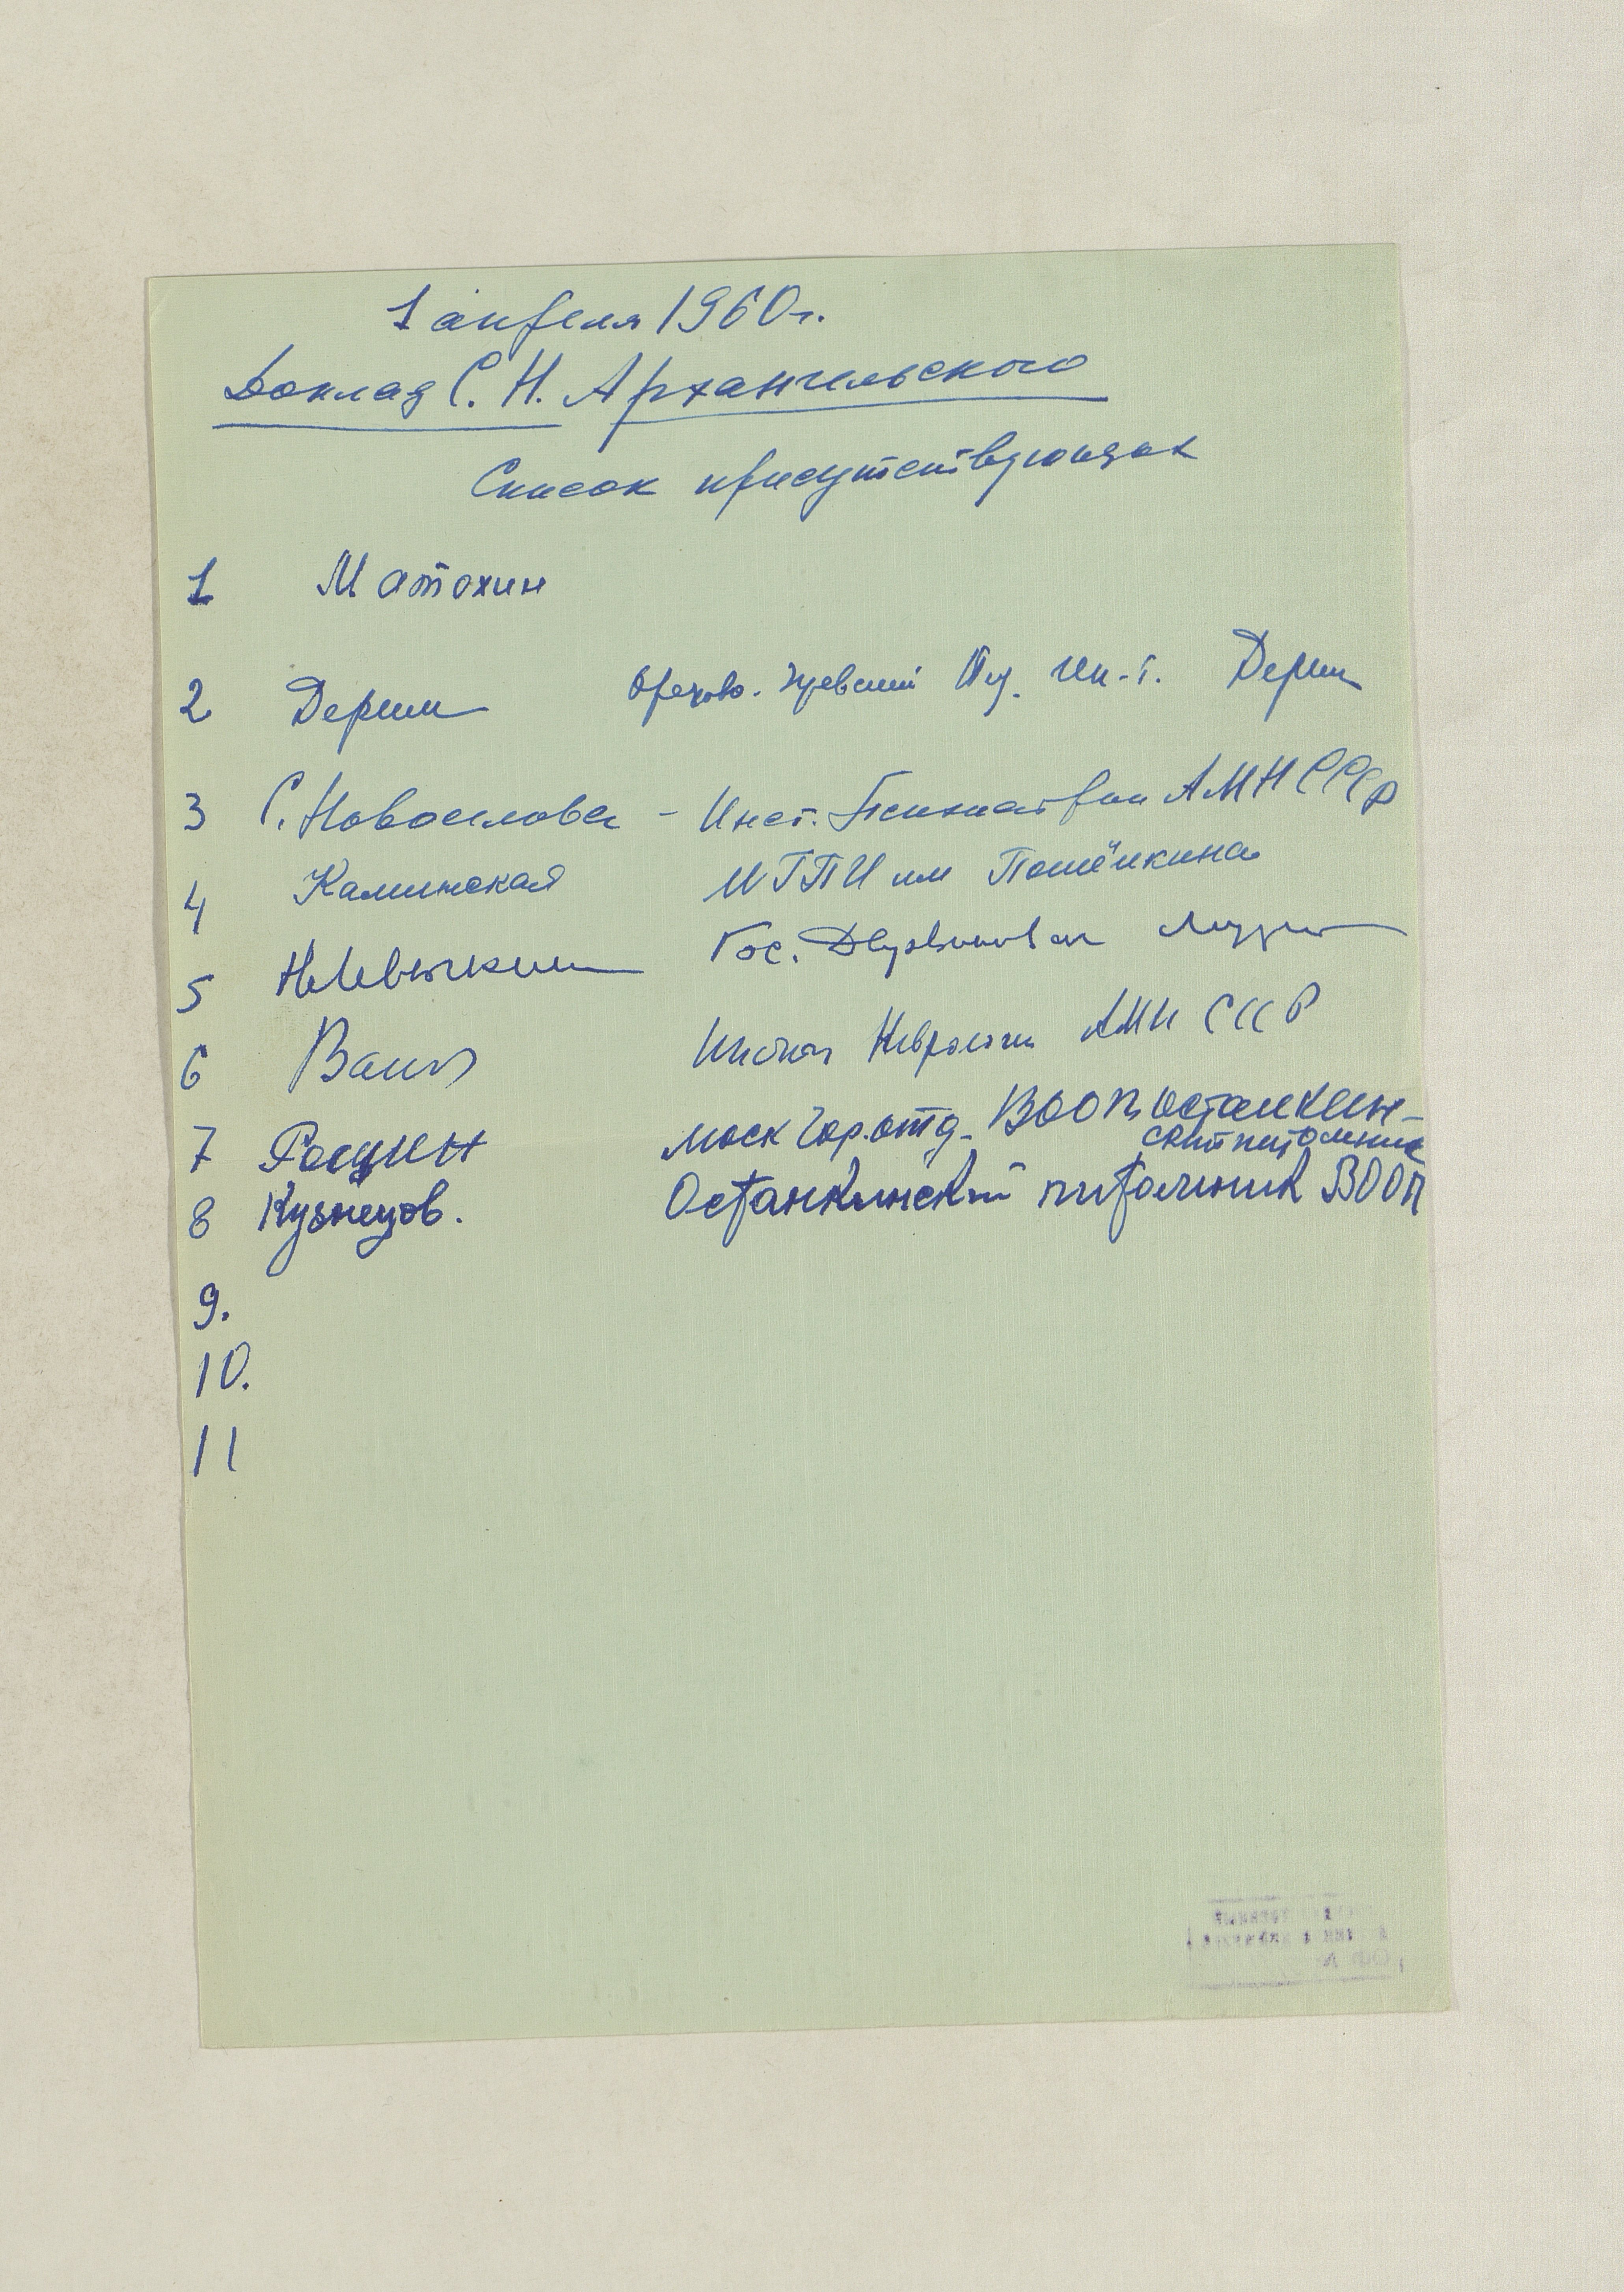 1 апреля 1960 г.
Доклад С. Н. Архангельского
Список присутствующих
1 Матохин
2 Дерим Орехово-Зуевский Пед. Ин-т. Дерим
3 С. Новоселова - Инст. Психиатрии АМН СССР
4 Каминская МГПИ им Потёмкина
5 Гос. Дарвиновский музей
6 Инстит Неврологии АМН СССР
7 Рощин Моск гор. отд. ВООП Останкин-
ский питомник
8 Кузнецов. Останкинский питомник ВООП
9.
10.
11